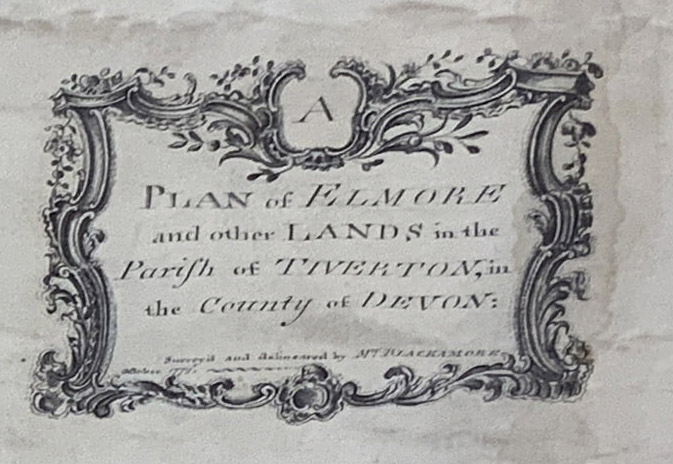 A
PLAN of ELMORE
and other LANDS in the
Pariſh of TIVERTON, in
the County of DEVON:
Survey'd and delineated by Mr. BLACKAMORE,
October